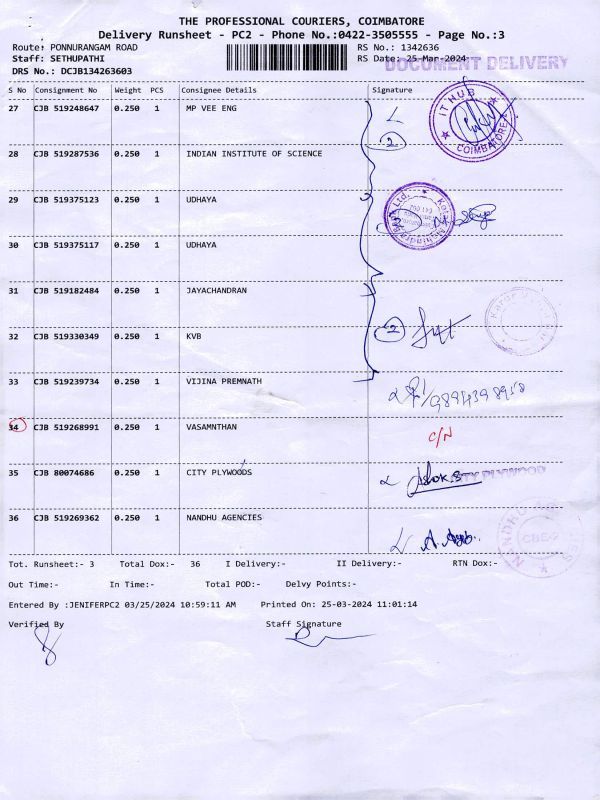 THE PROFESSIONAL COURIERS, COIMBATORE
Delivery Runsheet - PC2 - Phone No.:0422-3505555 - Page No.:3
Route: PONNURANGAM ROAD RS No.: 1342636
Staff: SETHUPATHI RS Date: 25-Mar-2024
DOCUMENT DELIVERY
DRS No.: DCJB134263603
S No Consignment No Weight PCS Consignee Details Signature
27 CJB 519248647 0.250 1 MP VEE ENG
IT HUB
COIMBATORE
2
28 CJB 519287536 0.250 1 INDIAN INSTITUTE OF SCIENCE
29 CJB 519375123 0.250 1 UDHAYA
30 CJB 519375117 0.250 1 UDHAYA
31 CJB 519182484 0.250 1 JAYACHANDRAN
32 CJB 519330349 0.250 1 KVB
2
33 CJB 519239734 0.250 1 VIJINA PREMNATH
9894398958
34 CJB 519268991 0.250 1 VASAMNTHAN
C/N
35 CJB 80074686 0.250 1 CITY PLYWOODS
Ashok.S CITY PLYWOOD
36 CJB 519269362 0.250 1 NANDHU AGENCIES
NANDHU
CBE-2
Tot. Runsheet:- 3 Total Dox:- 36 I Delivery:- II Delivery:- RTN Dox:-
Out Time:- In Time:- Total POD:- Delvy Points:-
Entered By :JENIFERPC2 03/25/2024 10:59:11 AM Printed On: 25-03-2024 11:01:14
Verified By Staff Signature